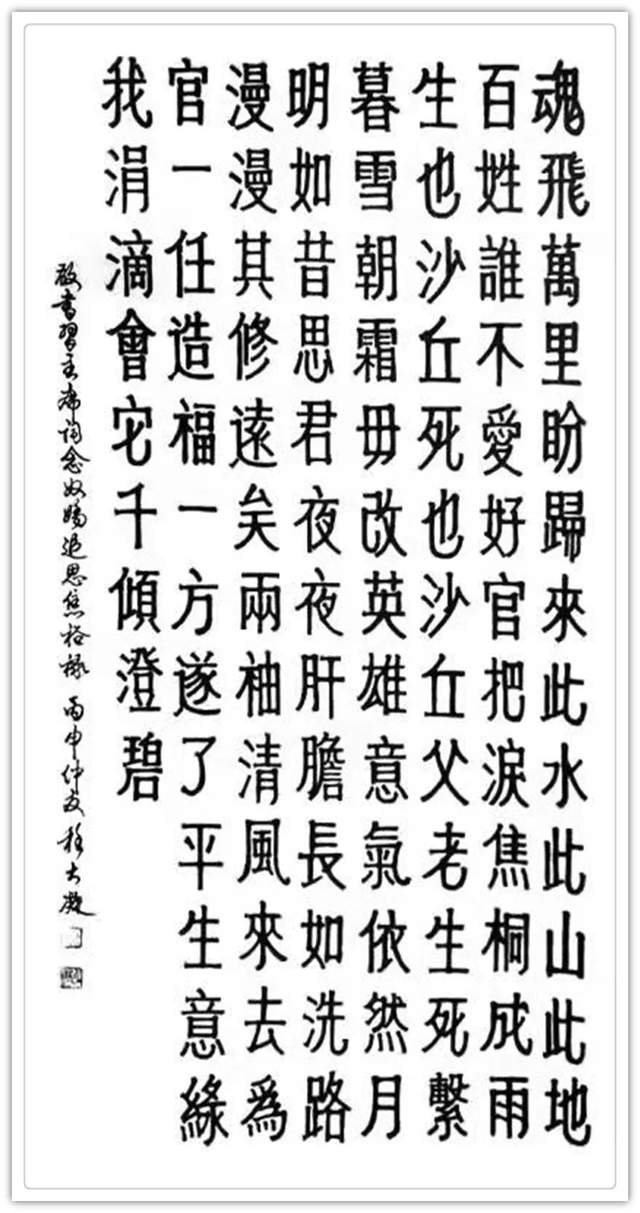 魂飛萬里盼歸來此水此山此地
百姓誰不愛好官把淚焦桐成雨
生也沙丘死也沙丘父老生死繫
暮雪朝霜毋改英雄意氣依然月
明如昔思君夜夜肝膽長如洗路
漫漫其修遠矣兩袖清風來去爲
官一任造福一方遂了平生意緣
我涓滴會它千傾澄碧
敬書習主席詞念奴嬌追思焦裕祿 丙申仲夏